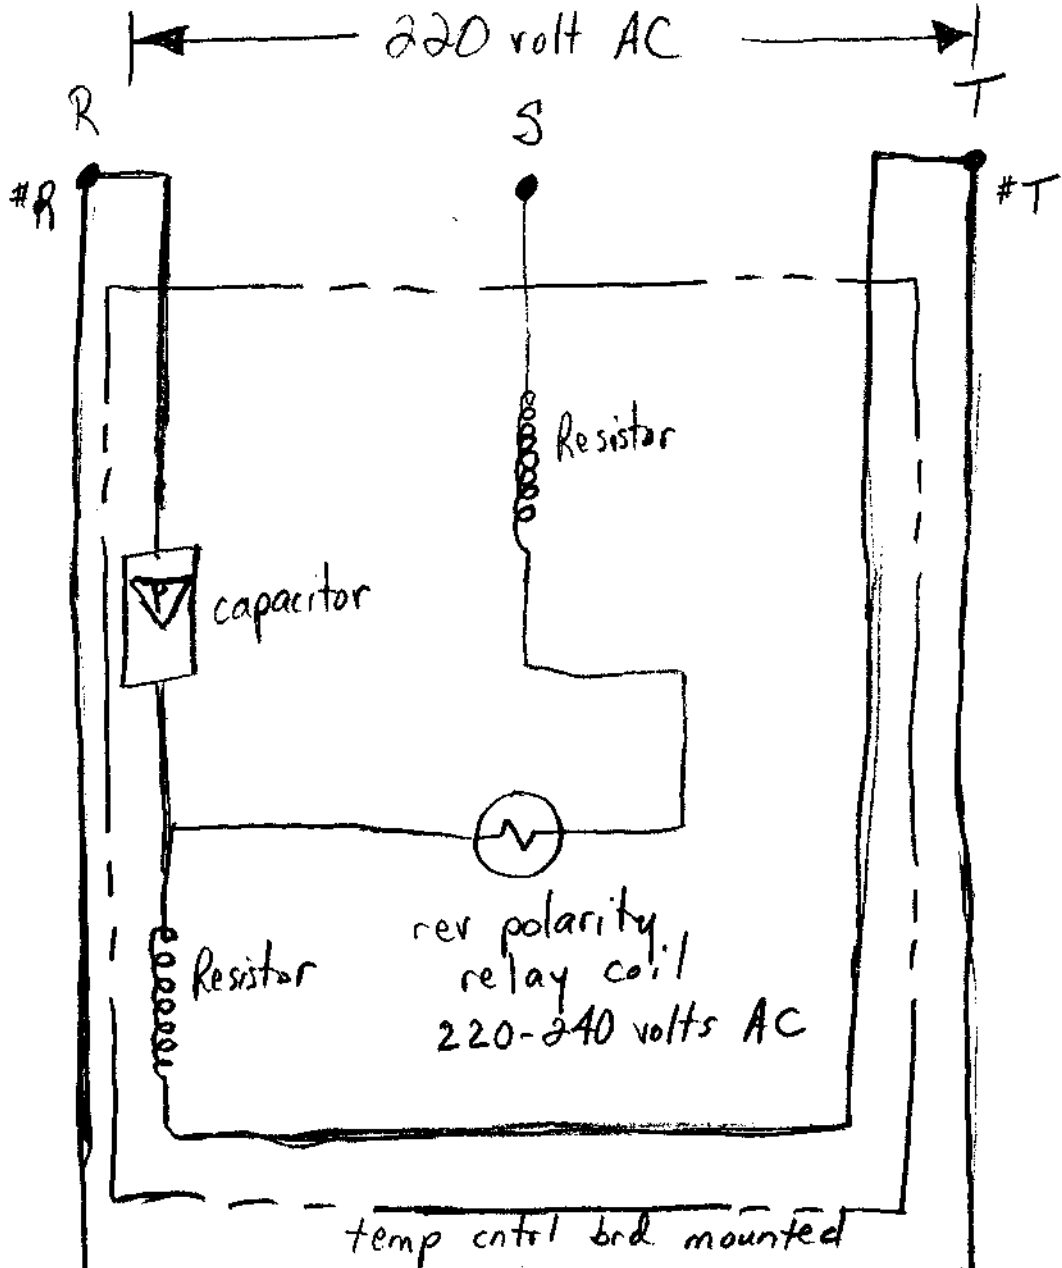 220 volt AC
R
S
T
#R
#T
Resistor
P
capacitor
rev polarity
relay coil
220-240 volts AC
Resistor
temp cntrl brd mounted